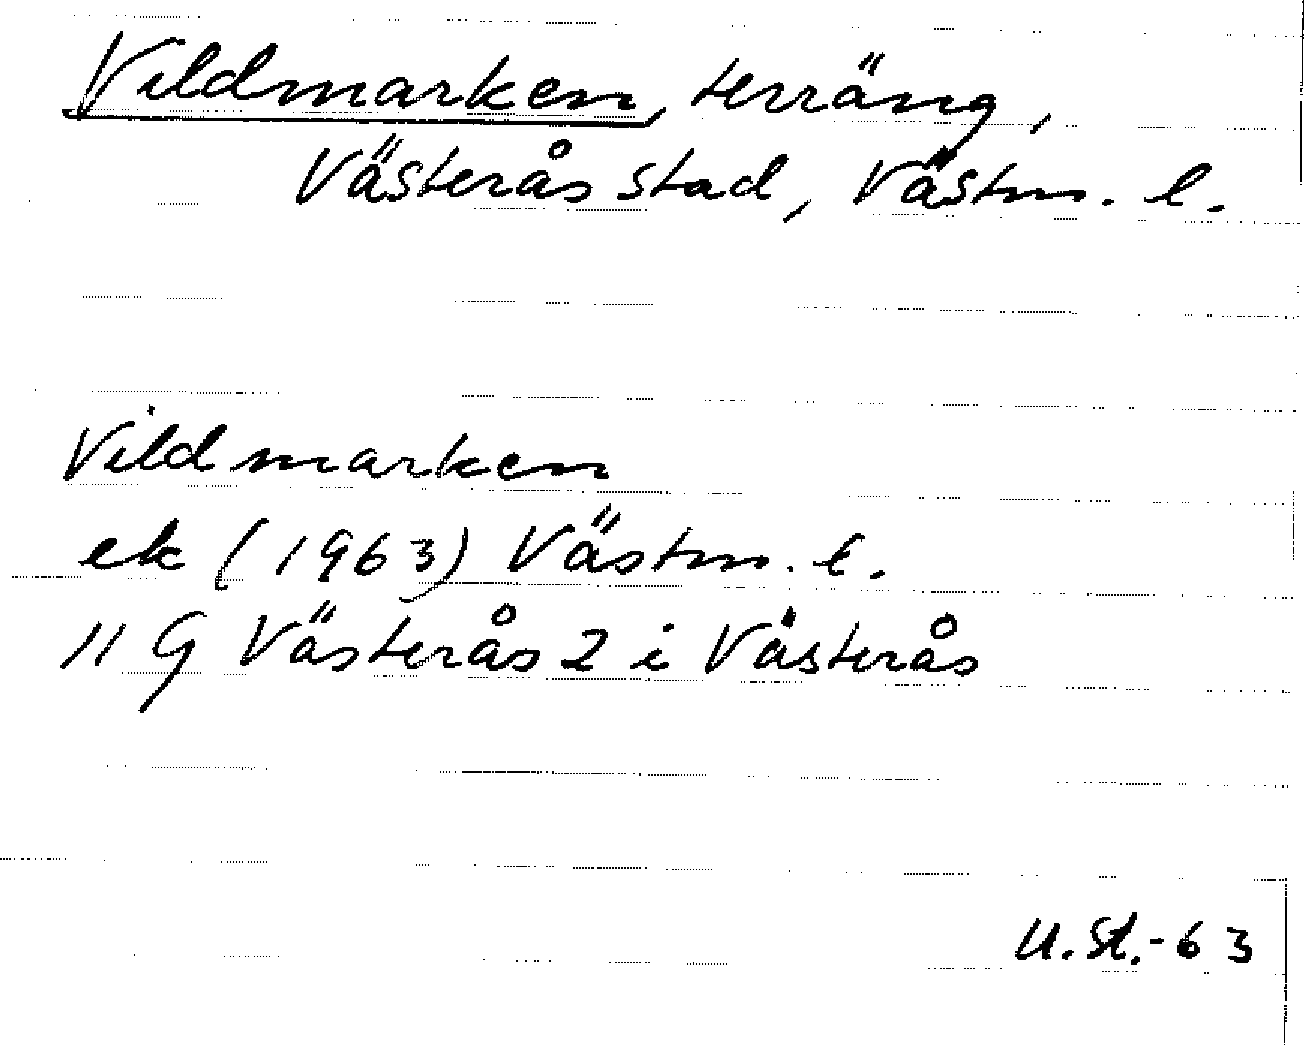 Vildmarken, terräng,
Västerås stad, Västm. l.
Vildmarken
ek (1963) Västm. l.
11 G Västerås 2 i Västerås
U. St.-63